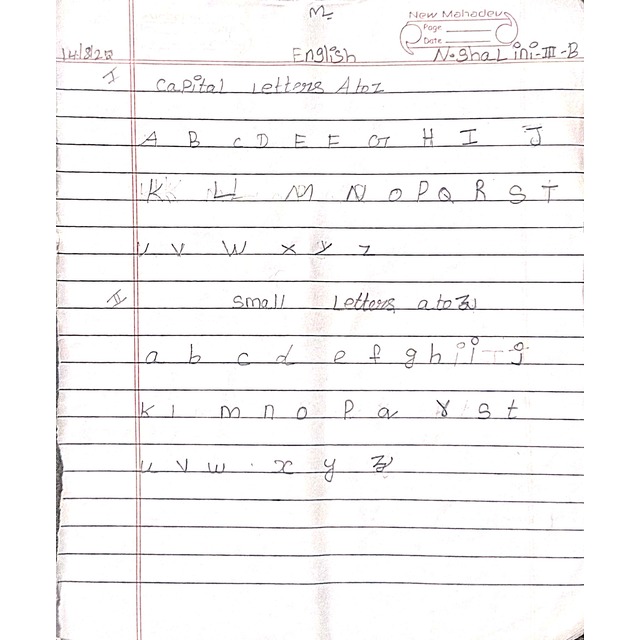 New Mahadev
Page
Date
14/8/20 English N.shaLini-III-B
I Capital Letters A to Z
A B C D E F G H I J
K L M N O P Q R S T
U V W X Y Z
II Small Letters a to z
a b c d e f g h i j
k l m n o p q r s t
u v w x y z